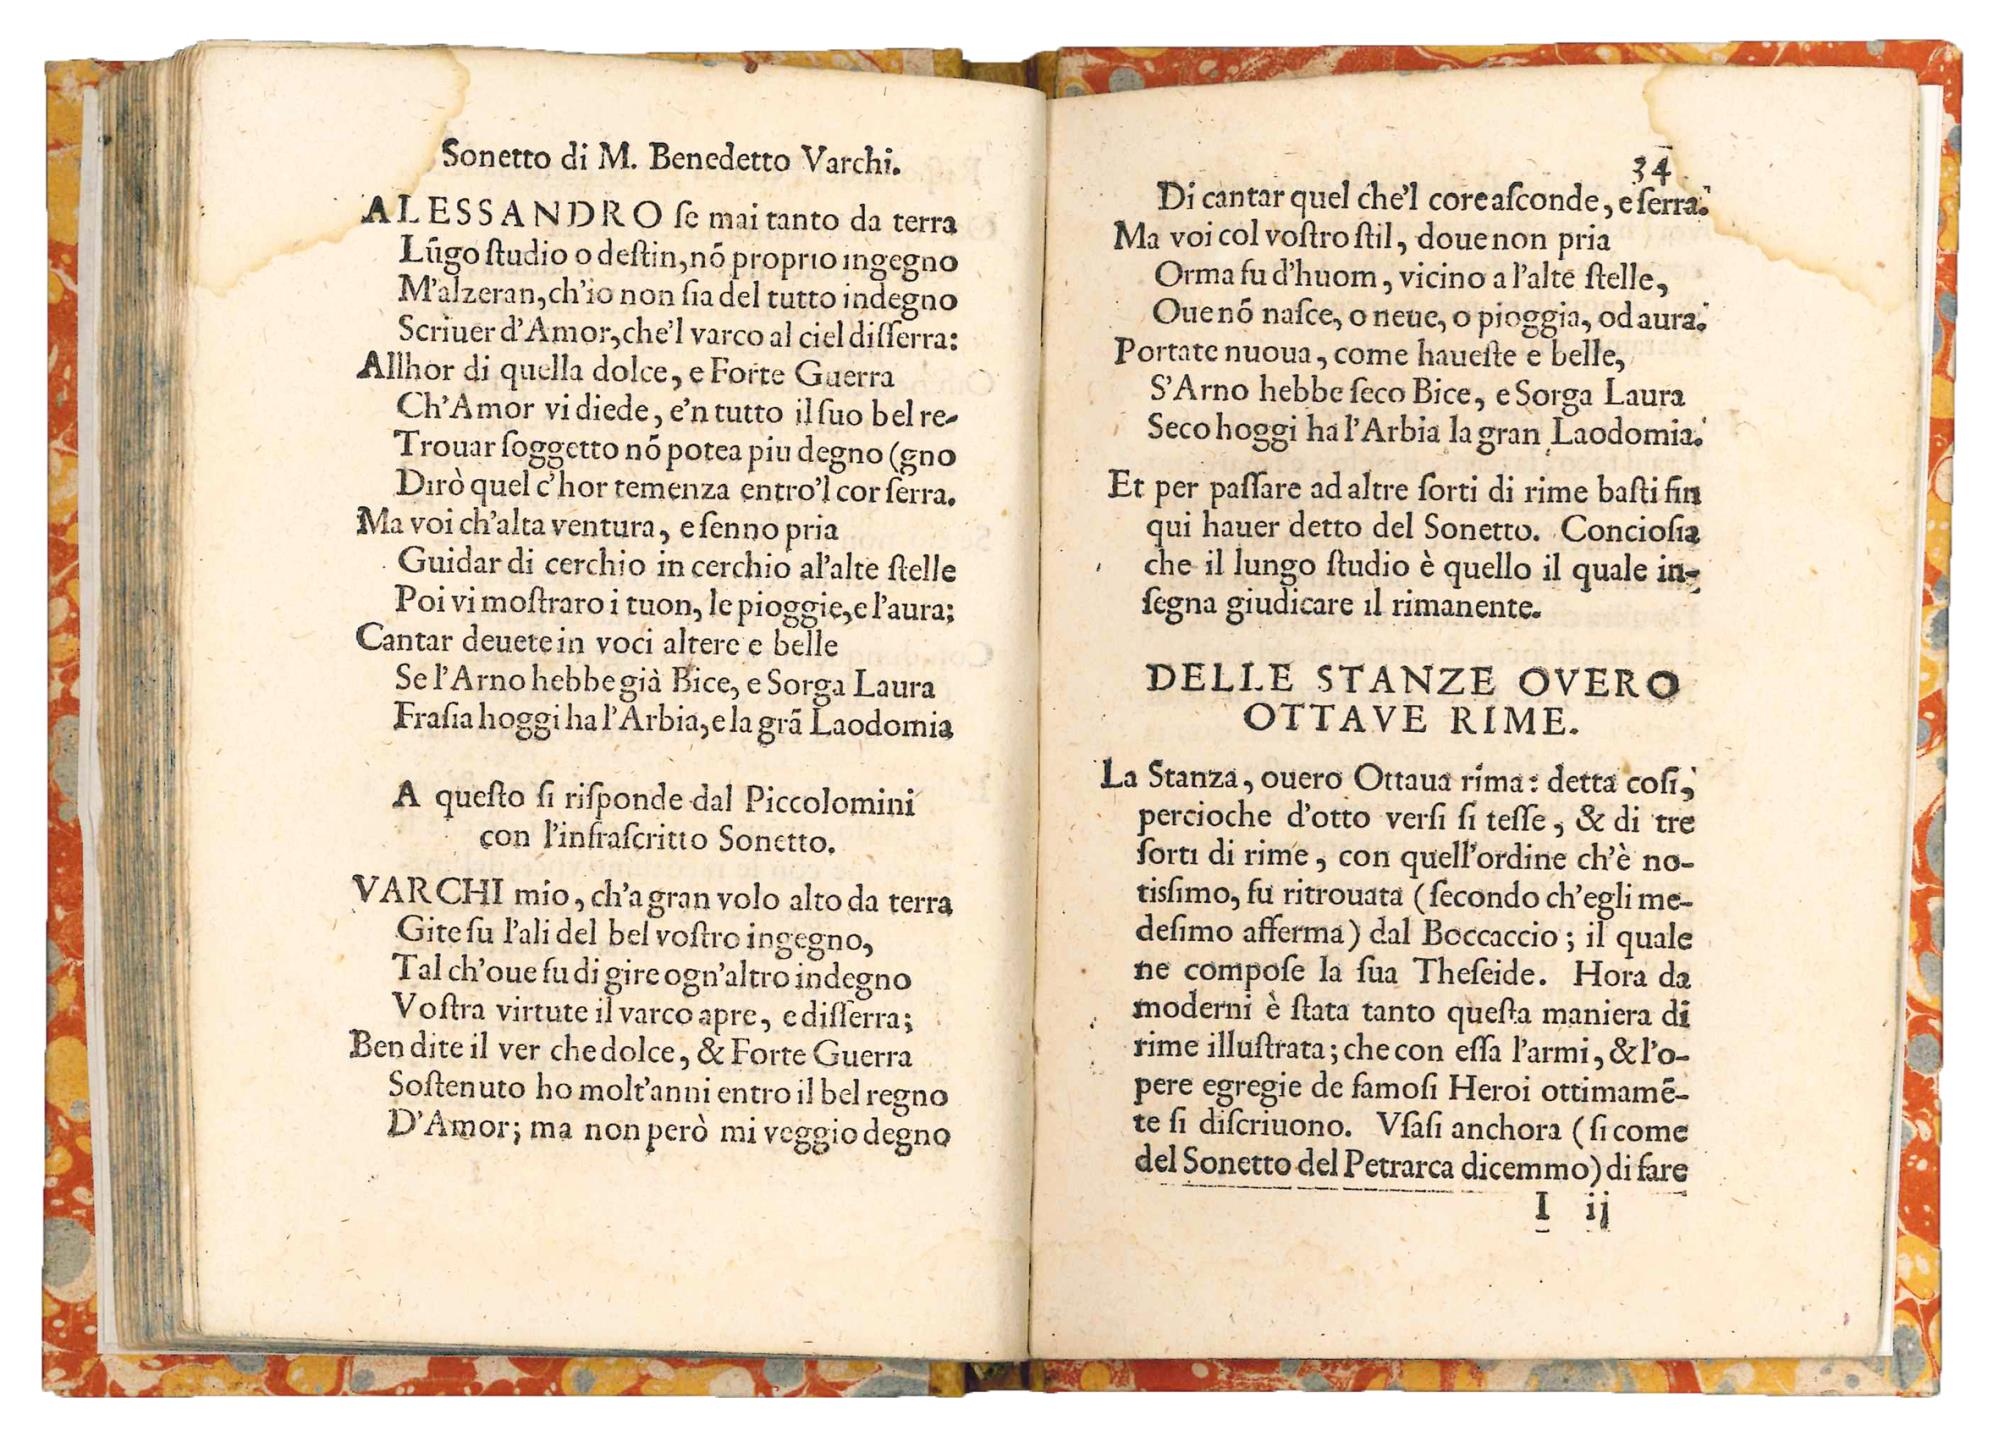 Sonetto di M. Benedetto Varchi.
ALESSANDRO ſe mai tanto da terra
Lũgo ſtudio o deſtin, nõ proprio ingegno
M'alzeran, ch'io non ſia del tutto indegno
Scriuer d'Amor, che'l varco al ciel diſſerra:
Allhor di quella dolce, e Forte Guerra
Ch'Amor vi diede, e'n tutto il ſuo bel re-
Trouar ſoggetto nõ potea piu degno (gno
Dirò quel c'hor temenza entro'l cor ſerra.
Ma voi ch'alta ventura, e ſenno pria
Guidar di cerchio in cerchio al'alte ſtelle
Poi vi moſtraro i tuon, le pioggie, e l'aura;
Cantar deuete in voci altere e belle
Se l'Arno hebbe già Bice, e Sorga Laura
Fraſia hoggi ha l'Arbia, e la grã Laodomia
A queſto ſi riſponde dal Piccolomini
con l'infraſcritto Sonetto.
VARCHI mio, ch'a gran volo alto da terra
Gite ſu l'ali del bel voſtro ingegno,
Tal ch'oue fu di gire ogn'altro indegno
Voſtra virtute il varco apre, e diſſerra;
Ben dite il ver che dolce, & Forte Guerra
Soſtenuto ho molt'anni entro il bel regno
D'Amor; ma non però mi veggio degno
34
Di cantar quel che'l core aſconde, e ſerra.
Ma voi col voſtro ſtil, doue non pria
Orma fu d'huom, vicino a l'alte ſtelle,
Oue nõ naſce, o neue, o pioggia, od aura.
Portate nuoua, come haueſte e belle,
S'Arno hebbe ſeco Bice, e Sorga Laura
Seco hoggi ha l'Arbia la gran Laodomia.
Et per paſſare ad altre ſorti di rime baſti fin
qui hauer detto del Sonetto. Concioſia
che il lungo ſtudio è quello il quale in-
ſegna giudicare il rimanente.
DELLE STANZE OVERO
OTTAVE RIME.
La Stanza, ouero Ottaua rima: detta coſi,
percioche d'otto verſi ſi teſſe, & di tre
ſorti di rime, con quell'ordine ch'è no-
tiſſimo, fu ritrouata (ſecondo ch'egli me-
deſimo afferma) dal Boccaccio; il quale
ne compoſe la ſua Theſeide. Hora da
moderni è ſtata tanto queſta maniera di
rime illuſtrata; che con eſſa l'armi, & l'o-
pere egregie de famoſi Heroi ottimamẽ-
te ſi diſcriuono. Vſaſi anchora (ſi come
del Sonetto del Petrarca dicemmo) di fare
I ij